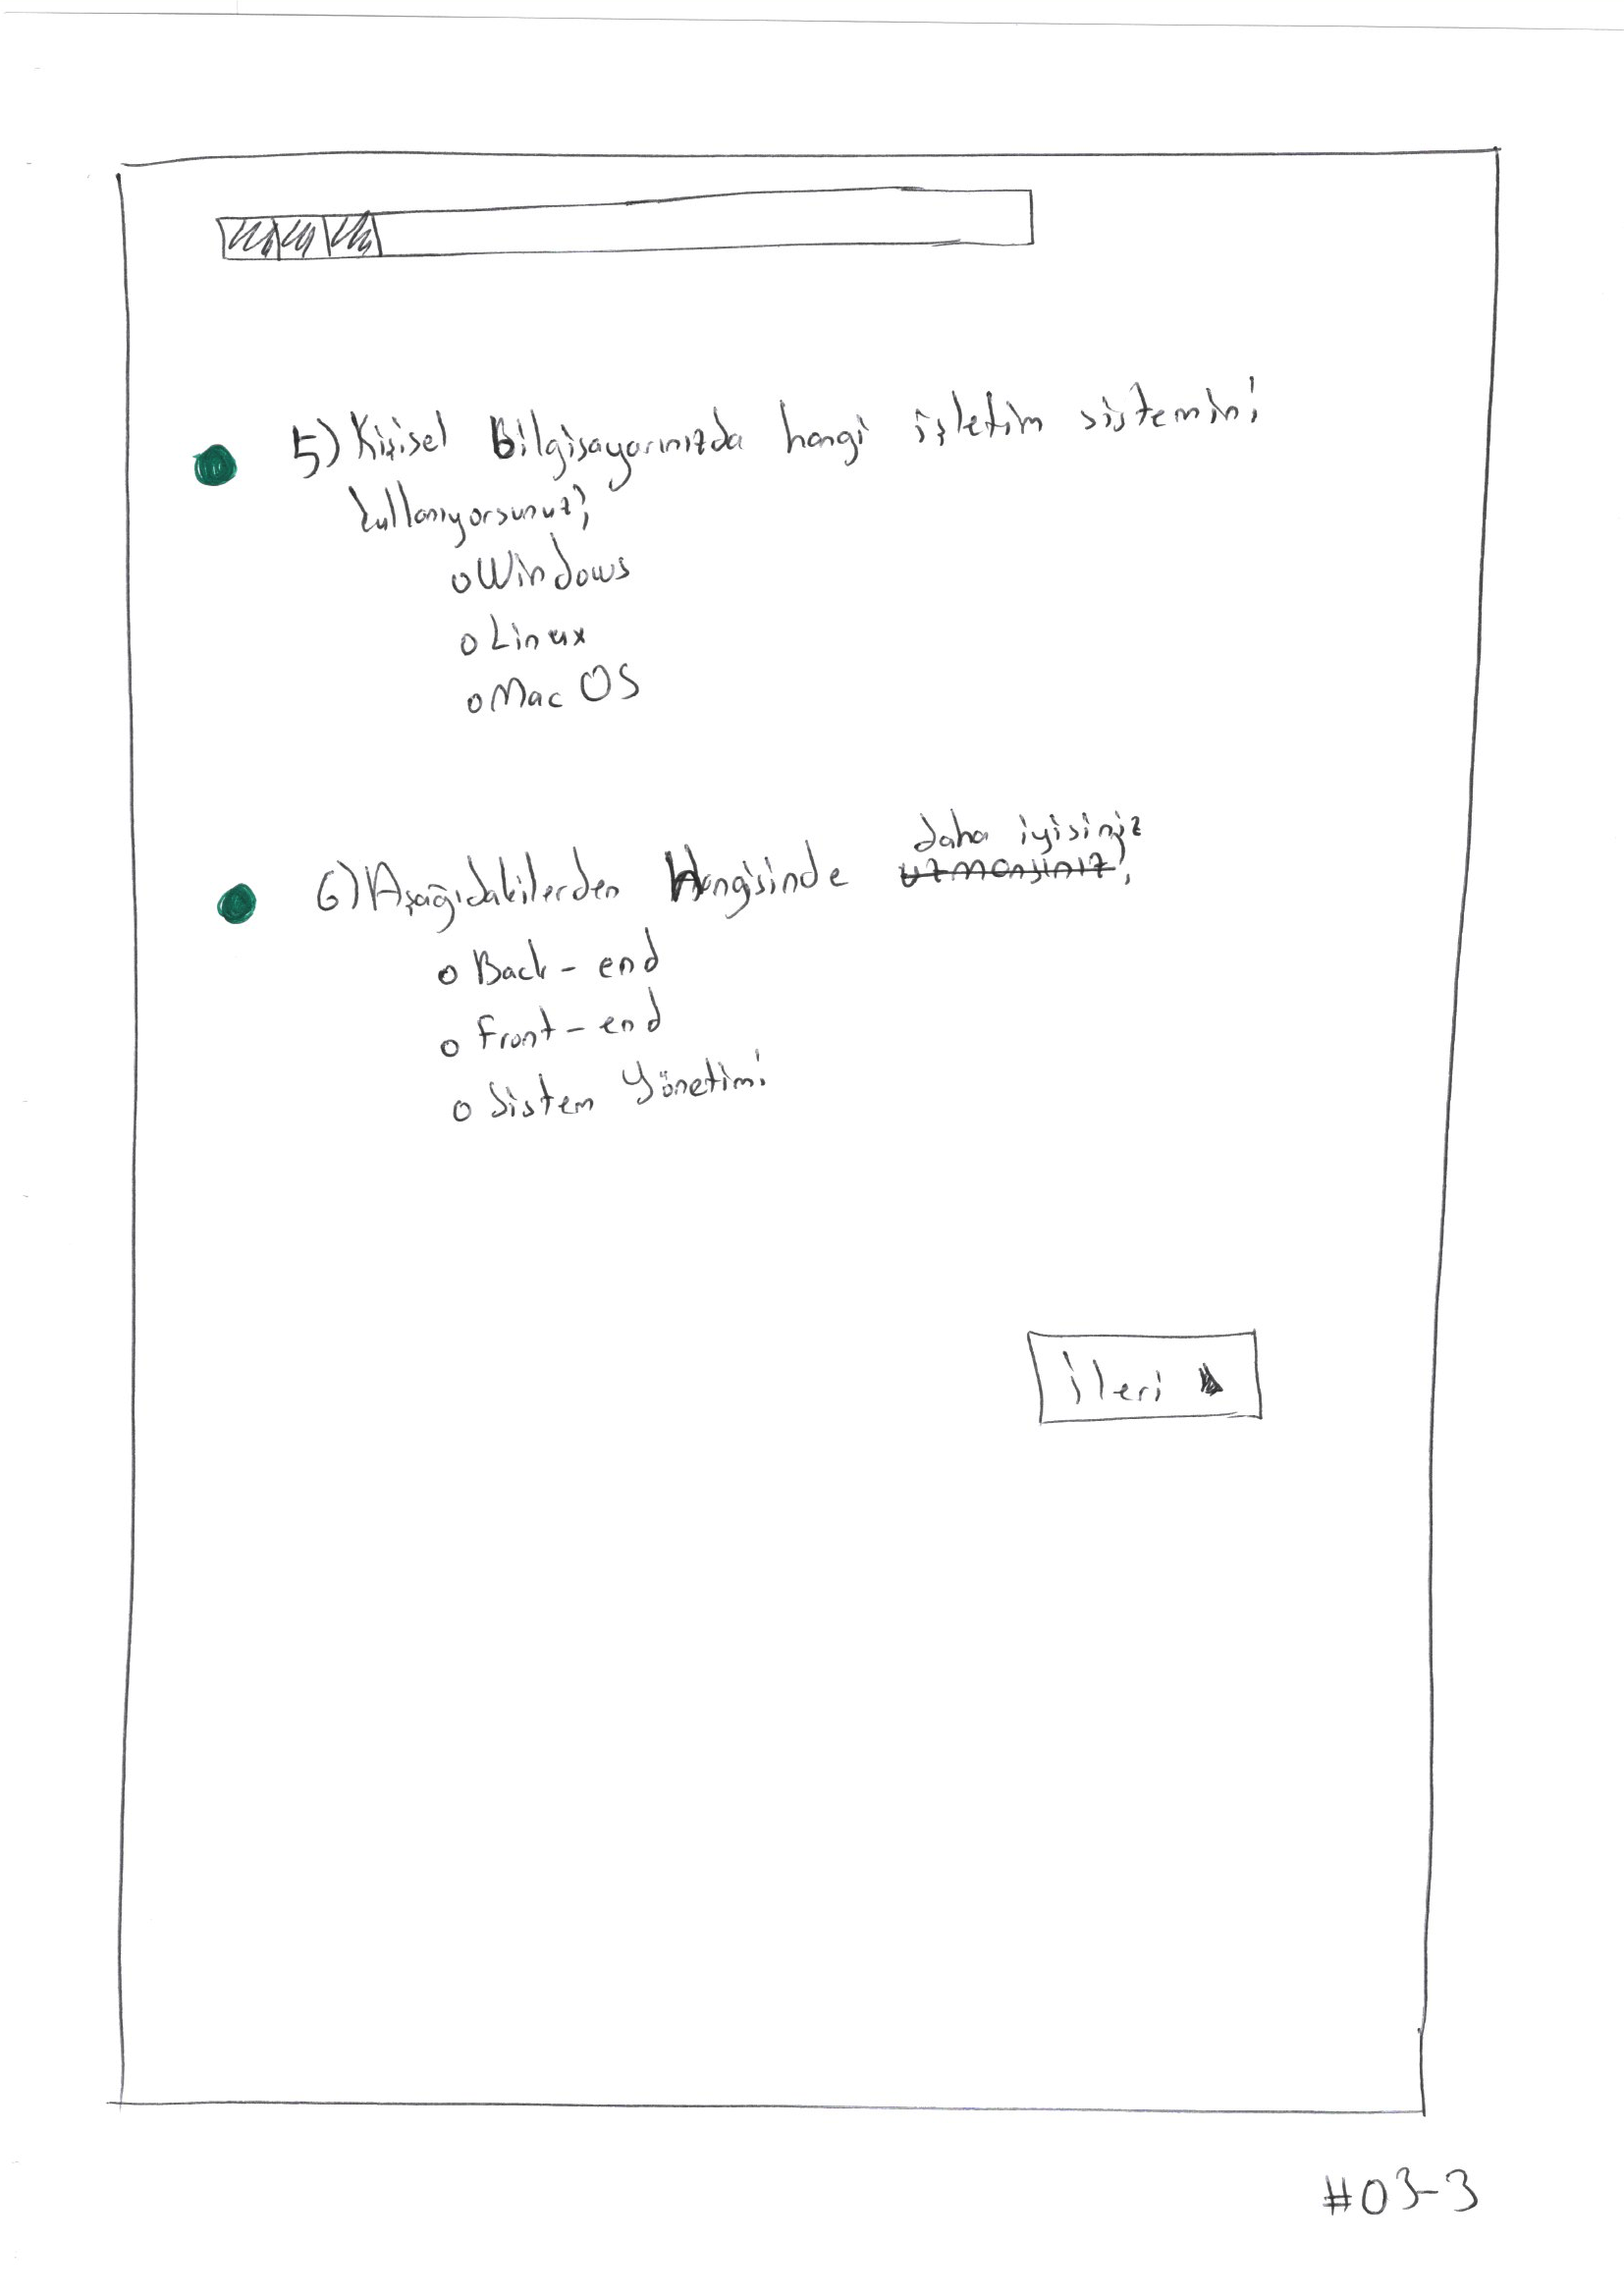 5) Kişisel Bilgisayarınızda hangi işletim sistemini
kullanıyorsunuz?
o Windows
o Linux
o Mac OS
daha iyisiniz
6) Aşağıdakilerden Hangisinde uzmansınız?
o Back-end
o Front-end
o Sistem Yönetimi
İleri
#03-3